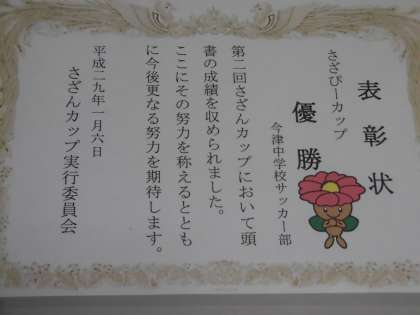 表彰状
さざぴーカップ
優勝
今津中学校サッカー部
第二回さざんカップにおいて頭
書の成績を収められました。
ここにその努力を称えるととも
に今後更なる努力を期待します。
平成二九年一月六日
さざんカップ実行委員会